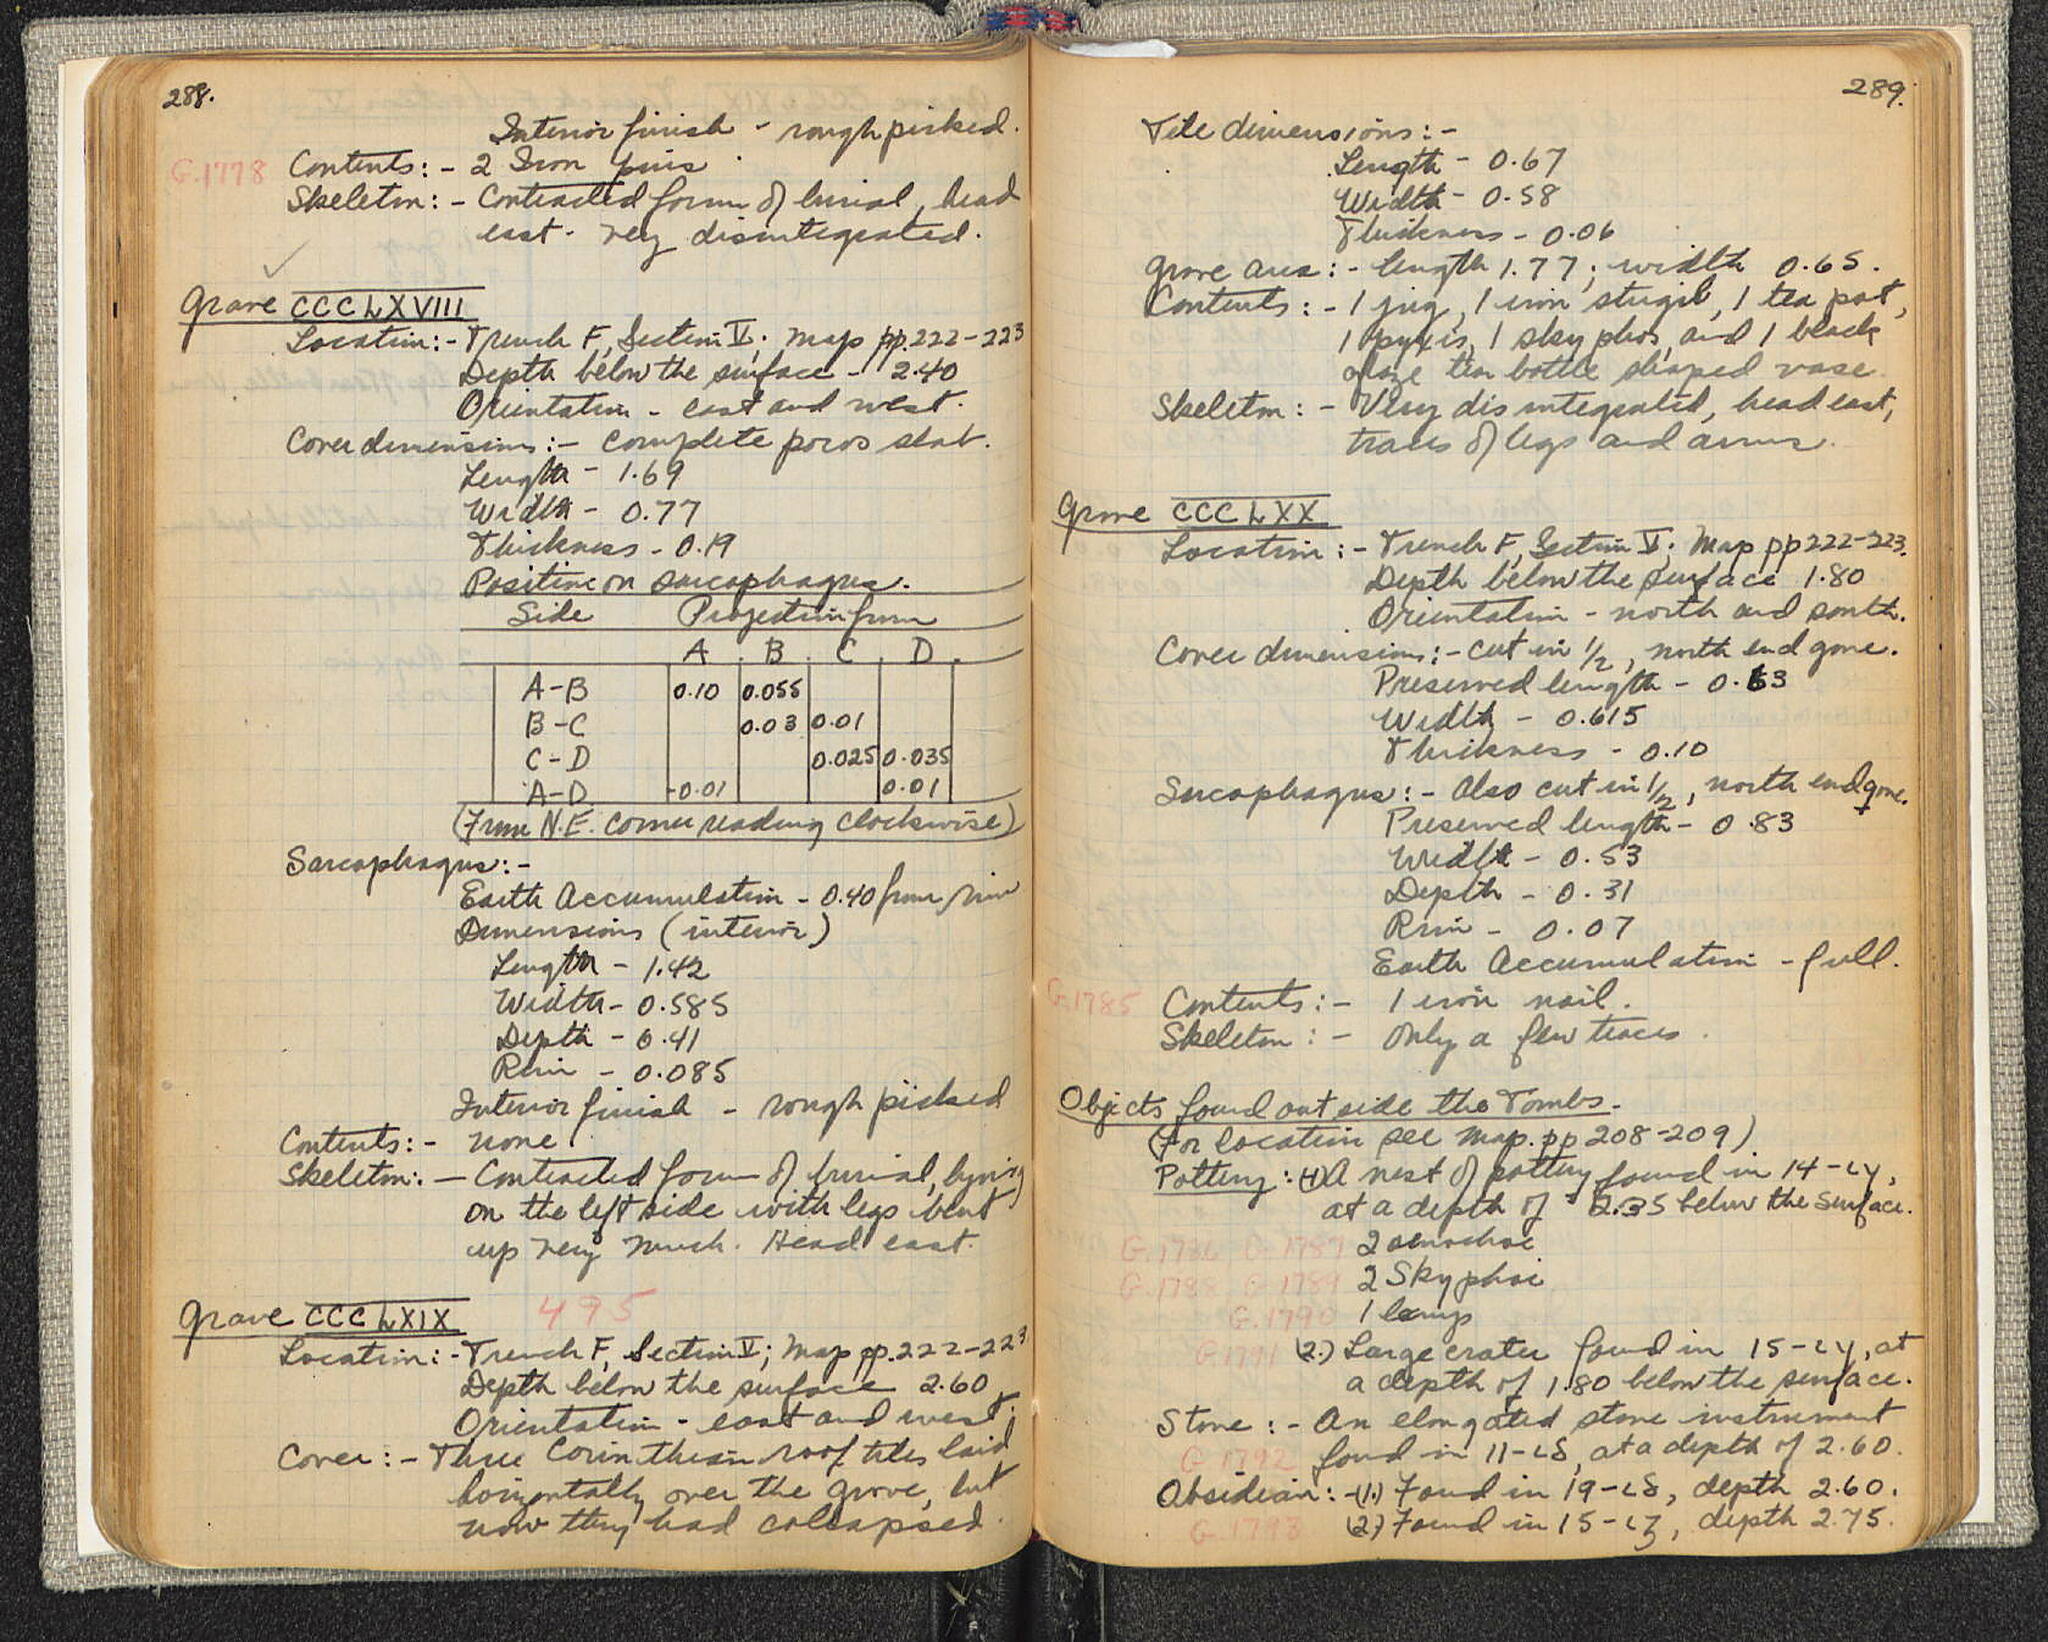 288.
Interior finish - rough picked.
G.1778 Contents: - 2 Iron pins.
Skeleton: - Contracted form of burial, head
east. Very disintegrated.
Grave CCCLXVIII
Location: - Trench F, Section V; Map pp. 222-223
Depth below the surface - 2.40
Orientation - east and west.
Cover dimensions: - complete poros slab.
Length - 1.69
Width - 0.77
Thickness - 0.19
Position on sarcophagus.
Side Projection from
A B C D
A-B 0.10 0.055
B-C 0.03 0.01
C-D 0.025 0.035
A-D -0.01 0.01
(From N.E. corner reading clockwise)
Sarcophagus: -
Earth Accumulation - 0.40 from rim
Dimensions (interior)
Length - 1.42
Width - 0.585
Depth - 0.41
Rim - 0.085
Interior finish - rough picked
Contents: - none
Skeleton: - Contracted form of burial, lying
on the left side with legs bent
up very much. Head east.
Grave CCCLXIX 495
Location: - Trench F, Section V; Map pp. 222-223
Depth below the surface 2.60
Orientation - east and west.
Cover: - Three Corinthian roof tiles laid
horizontally over the grave, but
now they had collapsed.
289.
Tile dimensions: -
Length - 0.67
Width - 0.58
Thickness - 0.06
Grave area: - length 1.77; width 0.65.
Contents: - 1 jug, 1 iron strigil, 1 tea pot,
1 pyxis, 1 skyphos, and 1 black
glaze tear bottle shaped vase.
Skeleton: - Very disintegrated, head east,
traces of legs and arms.
Grave CCCLXX
Location: - Trench F, Section V; Map pp 222-223.
Depth below the surface 1.80
Orientation - north and south.
Cover dimensions: - cut in 1/2, north end gone.
Preserved length - 0.63
Width - 0.615
Thickness - 0.10
Sarcophagus: - Also cut in 1/2, north end gone.
Preserved length - 0.83
Width - 0.53
Depth - 0.31
Rim - 0.07
Earth Accumulation - full.
G.1785 Contents: - 1 iron nail.
Skeleton: - Only a few traces.
Objects found outside the Tombs.
(For location see Map. pp 208-209)
Pottery: (1) A nest of pottery found in 14-LY,
at a depth of 2.35 below the surface.
G.1786 G.1787 2 oinochoi
G.1788 G.1789 2 Skyphoi
G.1790 1 lamp
G.1791 (2.) Large crater found in 15-LY, at
a depth of 1.80 below the surface.
Stone: - An elongated stone instrument
G.1792 found in 11-LS, at a depth of 2.60.
Obsidian: - (1.) Found in 19-LS, depth 2.60.
G.1793 (2.) Found in 15-LZ, depth 2.75.